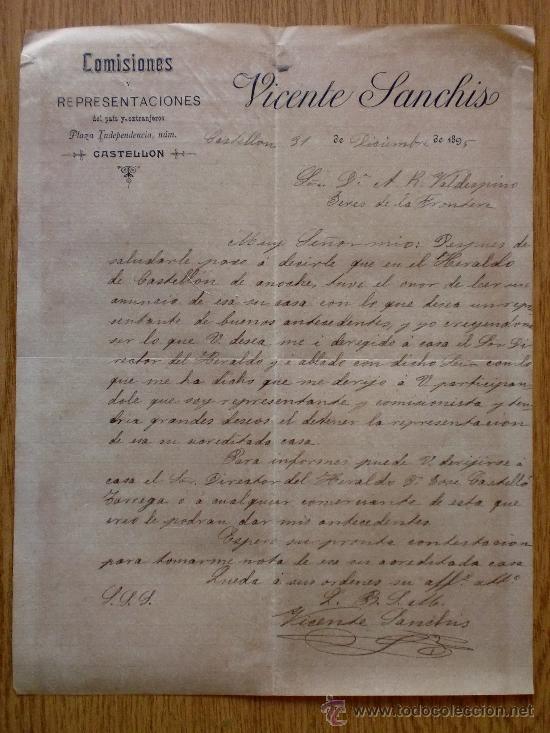 Comisiones
Y
REPRESENTACIONES
del país y extranjeros
Plaza Independencia, núm.
CASTELLON
Vicente Sanchis
Castellon 31 de Diciembre de 1895
Sr. Dn. A. R. Valdespino
Jeres de la Frontera
Muy Señor mio: Despues de
saludarle paso á decirle que en el Heraldo
de Castellón de anoche, tuve el onor de leer un
anuncio de esa su casa con lo que desea un repre
sentante de buenos antecedentes, y yo creyendome
ser lo que V. desea me i deregido á casa el Sor Di
rector del Heraldo y i ablado con dicho Sor con lo
que me ha dicho que me derija á V participan
dole que soy representante y comisionista y ten
dria grandes deseos el detener la representacion
de esa su acreditada casa.
Para informes puede V. derijirse á
casa el Sr. Director del Heraldo D. Jose Castelló
Tarrega o a cualquier comerciante de esta que
creo le podran dar mis antecedentes.
Espero su pronta contestacion
para tomarme nota de esa su acreditada casa
Queda á sus ordenes su affmo. atto.
S.S.S.
Q. B. S. M.
Vicente Sanchis
www.todocoleccion.net